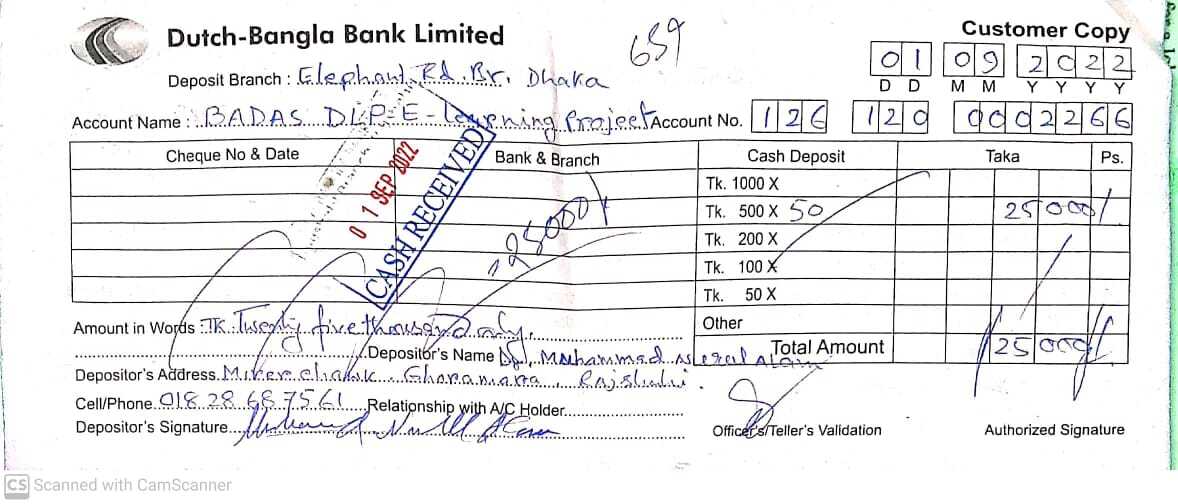 Dutch-Bangla Bank Limited
659
Customer Copy
01 09 2022
D D M M Y Y Y Y
Deposit Branch : Elephant Rd. Br. Dhaka
Account Name : BADAS DLP-E-Learning Project Account No. 126 120 0002266
Cheque No & Date Bank & Branch Cash Deposit Taka Ps.
Tk. 1000 X
Tk. 500 X 50 25000/
Tk. 200 X
Tk. 100 X
Tk. 50 X
Other
Total Amount 25000/
01 SEP 2022
CASH RECEIVED
25000/
Amount in Words Tk. Twenty five thousand only.
Depositor's Name Dr. Mohammad Alam
Depositor's Address. Ghoramara, Rajshahi.
Cell/Phone 01828687561 Relationship with A/C Holder
Depositor's Signature
Officer's/Teller's Validation Authorized Signature
CS Scanned with CamScanner